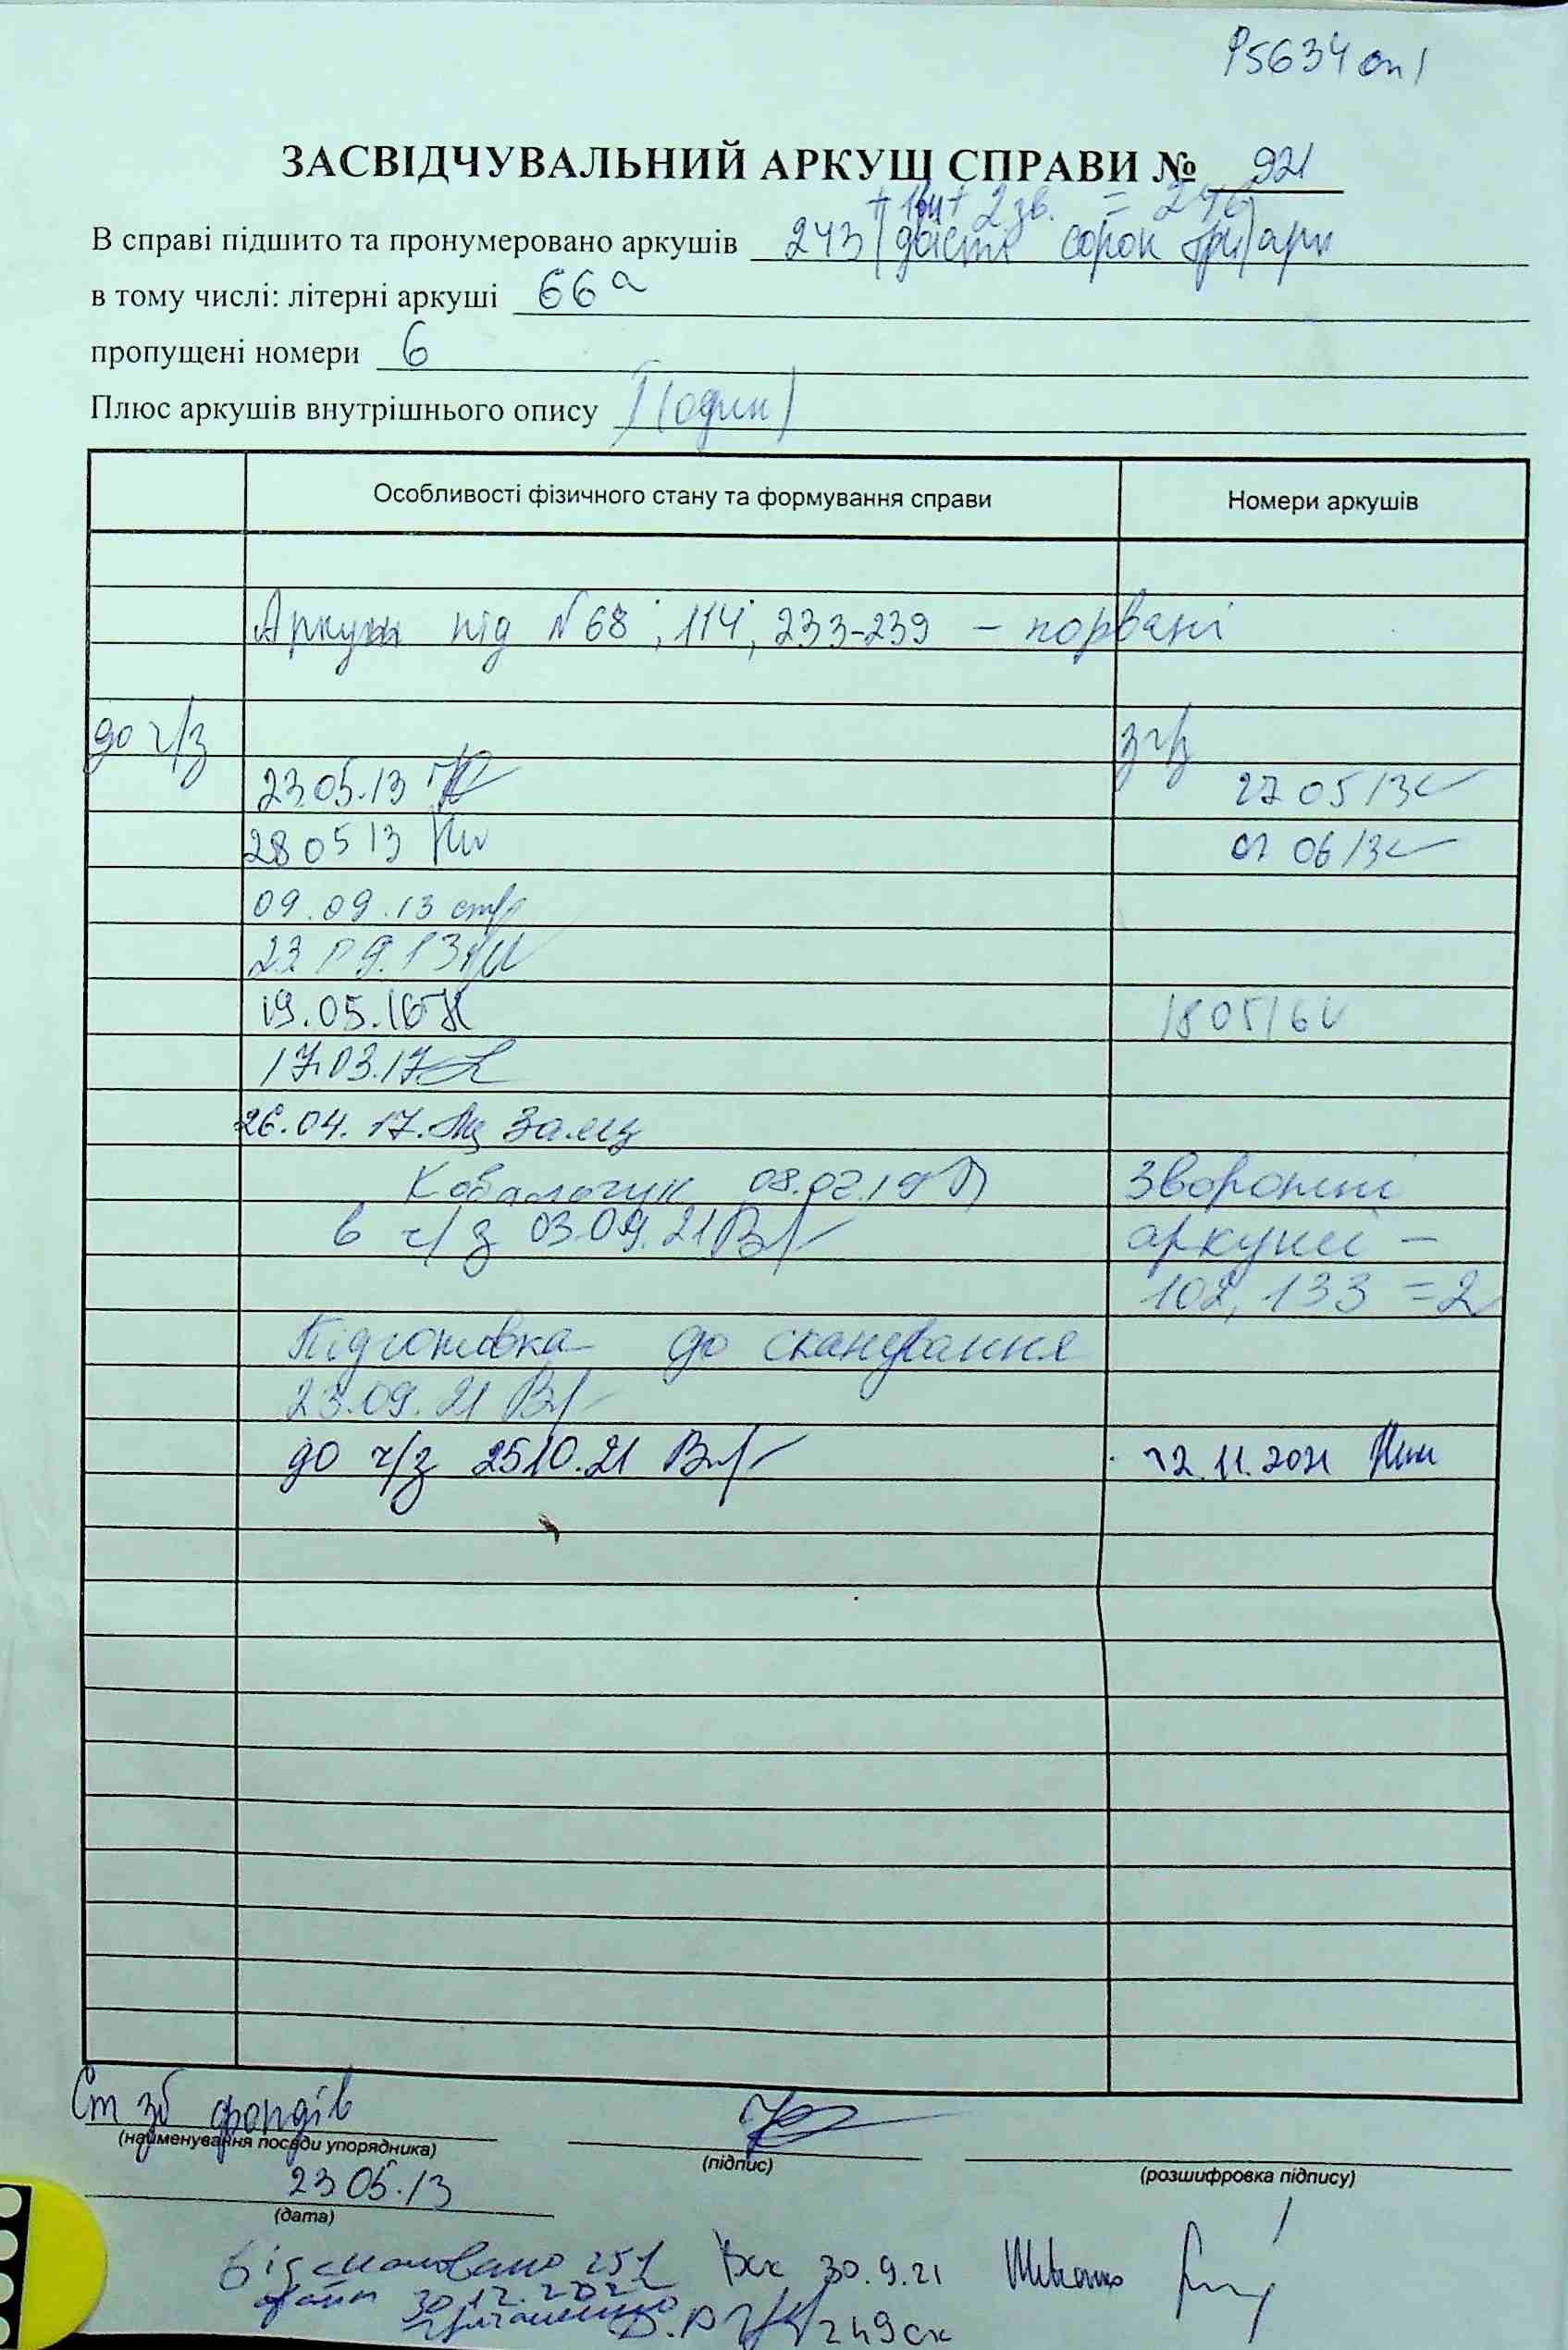 Р5634 оп 1
ЗАСВІДЧУВАЛЬНИЙ АРКУШ СПРАВИ № 921
+ 1вн + 2 зв. = 246
В справі підшито та пронумеровано аркушів 243 (двісті сорок три) арк
в тому числі: літерні аркуші 66а
пропущені номери 6
Плюс аркушів внутрішнього опису 1 (один)
Особливості фізичного стану та формування справи Номери аркушів
Аркуші під №68; 114; 233-239 – порвані
до ч/з з ч/з
23.05.13 27 05 13
28 05 13 07 06 13
09.09.13
23.09.13
19.05.16 18 05 16
17.03.17
26.04.17.
Ковальчук 08.02.19 Зворотні
в ч/з 03.09.21 аркуші –
102, 133 = 2
Підготовка до сканування
23.09.21
до ч/з 25 10.21 12.11.2021
Ст зб фондів
(найменування посади упорядника) (підпис) (розшифровка підпису)
23 05.13
(дата)
Відскановано 251 30.9.21
файл 30.12.2021
249 ск